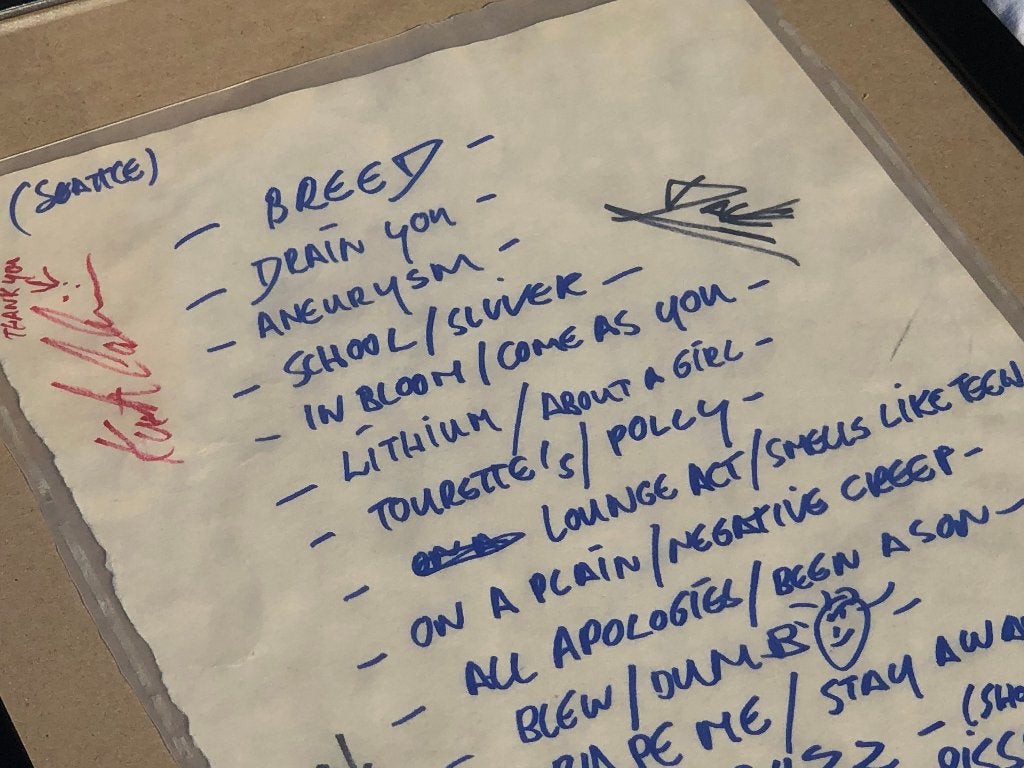 (SEATTLE)
THANK YOU
— BREED —
— DRAIN YOU —
— ANEURYSM —
— SCHOOL/SLIVER —
— IN BLOOM/COME AS YOU —
— LITHIUM/ABOUT A GIRL —
— TOURETTE'S/POLLY —
— LOUNGE ACT/SMELLS LIKE TEEN
— ON A PLAIN/NEGATIVE CREEP —
— ALL APOLOGIES/BEEN A SON —
— BLEW/DUMB —
— ME/STAY AWA
— (SHO